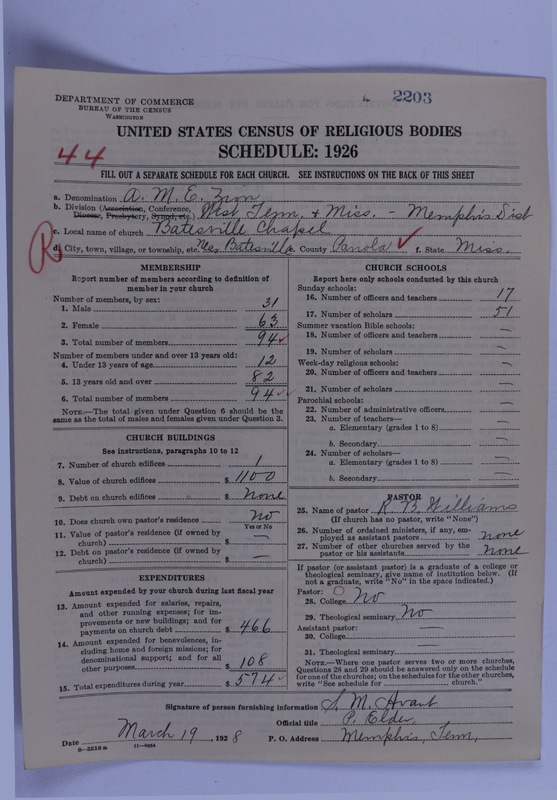 2203
DEPARTMENT OF COMMERCE
BUREAU OF THE CENSUS
WASHINGTON
UNITED STATES CENSUS OF RELIGIOUS BODIES
SCHEDULE: 1926
44
FILL OUT A SEPARATE SCHEDULE FOR EACH CHURCH. SEE INSTRUCTIONS ON THE BACK OF THIS SHEET
a. Denomination A. M. E. Zion
b. Division (Association, Conference, Diocese, Presbytery, Synod, etc.) West Tenn. + Miss. - Memphis Dist
c. Local name of church Batesville Chapel
R
d. City, town, village, or township, etc. Near Batesville e. County Panola f. State Miss.
MEMBERSHIP
Report number of members according to definition of
member in your church
Number of members, by sex:
1. Male 31
2. Female 63
3. Total number of members 94
Number of members under and over 13 years old:
4. Under 13 years of age 12
5. 13 years old and over 82
6. Total number of members 94
NOTE.—The total given under Question 6 should be the
same as the total of males and females given under Question 3.
CHURCH BUILDINGS
See instructions, paragraphs 10 to 12
7. Number of church edifices 1
8. Value of church edifices $ 1100
9. Debt on church edifices $ none
10. Does church own pastor's residence no
Yes or No
11. Value of pastor's residence (if owned by
church) $ —
12. Debt on pastor's residence (if owned by
church) $ —
EXPENDITURES
Amount expended by your church during last fiscal year
13. Amount expended for salaries, repairs,
and other running expenses; for im-
provements or new buildings; and for
payments on church debt $ 466
14. Amount expended for benevolences, in-
cluding home and foreign missions; for
denominational support; and for all
other purposes $ 108
15. Total expenditures during year $ 574
CHURCH SCHOOLS
Report here only schools conducted by this church
Sunday schools:
16. Number of officers and teachers 17
17. Number of scholars 51
Summer vacation Bible schools:
18. Number of officers and teachers —
19. Number of scholars —
Week-day religious schools:
20. Number of officers and teachers —
21. Number of scholars —
Parochial schools:
22. Number of administrative officers —
23. Number of teachers—
a. Elementary (grades 1 to 8) —
b. Secondary —
24. Number of scholars—
a. Elementary (grades 1 to 8) —
b. Secondary —
PASTOR
25. Name of pastor R. B. Williams
(If church has no pastor, write "None")
26. Number of ordained ministers, if any, em-
ployed as assistant pastors none
27. Number of other churches served by the
pastor or his assistants none
If pastor (or assistant pastor) is a graduate of a college or
theological seminary, give name of institution below. (If
not a graduate, write "No" in the space indicated.)
Pastor:
28. College No
29. Theological seminary No
Assistant pastor:
30. College —
31. Theological seminary —
NOTE.—Where one pastor serves two or more churches,
Questions 28 and 29 should be answered only on the schedule
for one of the churches; on the schedules for the other churches,
write "See schedule for church."
Signature of person furnishing information S. M. Avant
Official title P. Elder
Date March 19, 1928 P. O. Address Memphis, Tenn.
8—5518a 11—9664